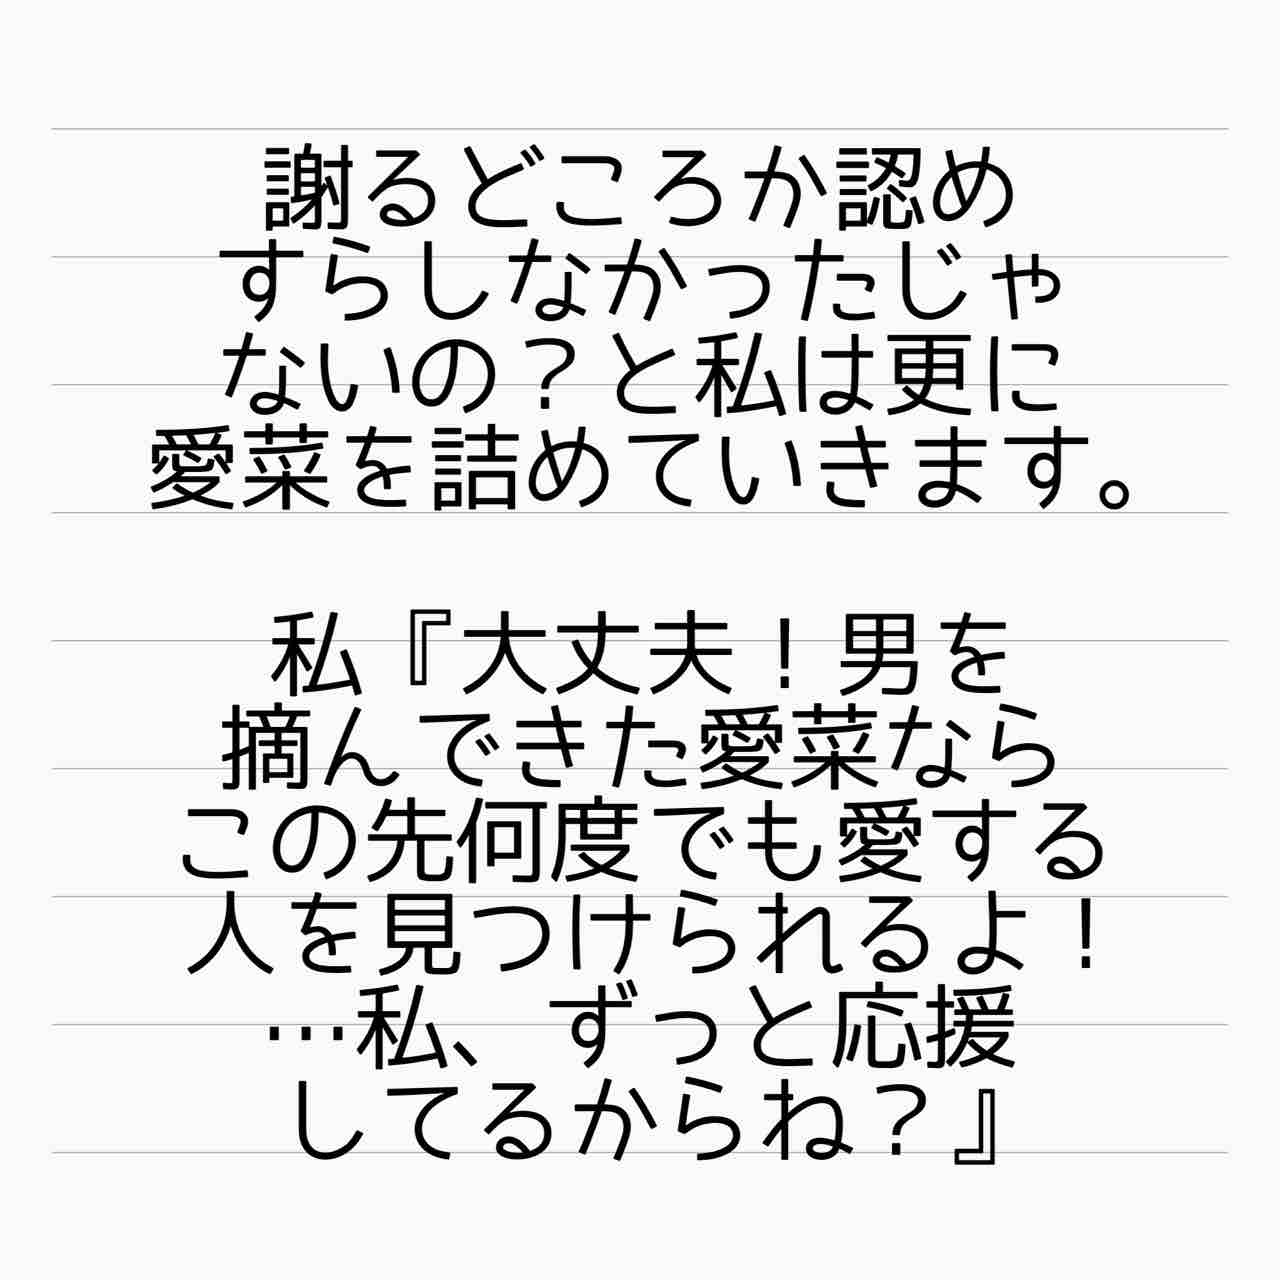 謝るどころか認め
すらしなかったじゃ
ないの？と私は更に
愛菜を詰めていきます。
私『大丈夫！男を
摘んできた愛菜なら
この先何度でも愛する
人を見つけられるよ！
…私、ずっと応援
してるからね？』